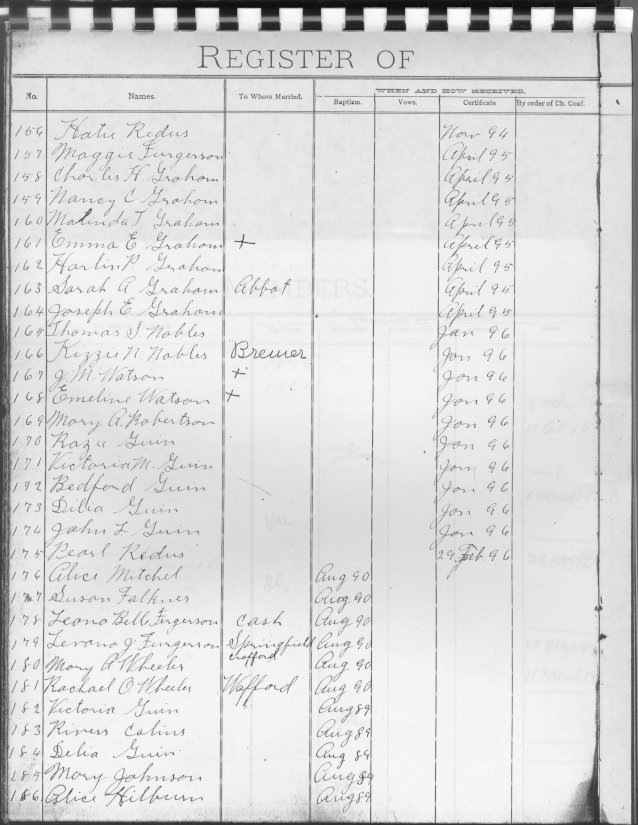 REGISTER OF
No. Names. To Whom Married. WHEN AND HOW RECEIVED.
Baptism. Vows. Certificate By order of Ch. Conf.
156 Katie Redus Nov 94
157 Maggie Furgerson April 95
158 Charles H. Graham April 95
159 Nancy C Graham April 95
160 Malinda T Graham April 95
161 Emma E Graham + April 95
162 Harlin P. Graham April 95
163 Sarah A Graham Abbot April 95
164 Joseph E Graham April 95
165 Thomas S. Nobles Jan 96
166 Kizzie N Nobles Brewer Jan 96
167 J M. Watson + Jan 96
168 Emeline Watson + Jan 96
169 Mary A. Robertson Jan 96
170 Guin Jan 96
171 Victoria M. Guin Jan 96
172 Bedford Guin Jan 96
173 Dilia Guin Jan 96
174 John L Guin Jan 96
175 Pearl Redus 29 Feb. 96
176 Alice Mitchel Aug 90
177 Susan Falkner Aug 90
178 Leona Bell Furgerson Cash Aug 90
179 J Furgerson Springfield Aug 90
180 Mary A Wheeler Crafford Aug 90
181 Rachael O. Wheeler Wofford Aug 90
182 Victoria Guin Aug 89
183 Rivers Calins Aug 89
184 Delia Guin Aug 89
185 Mary Johnson Aug 89
186 Alice Hilburn Aug 89